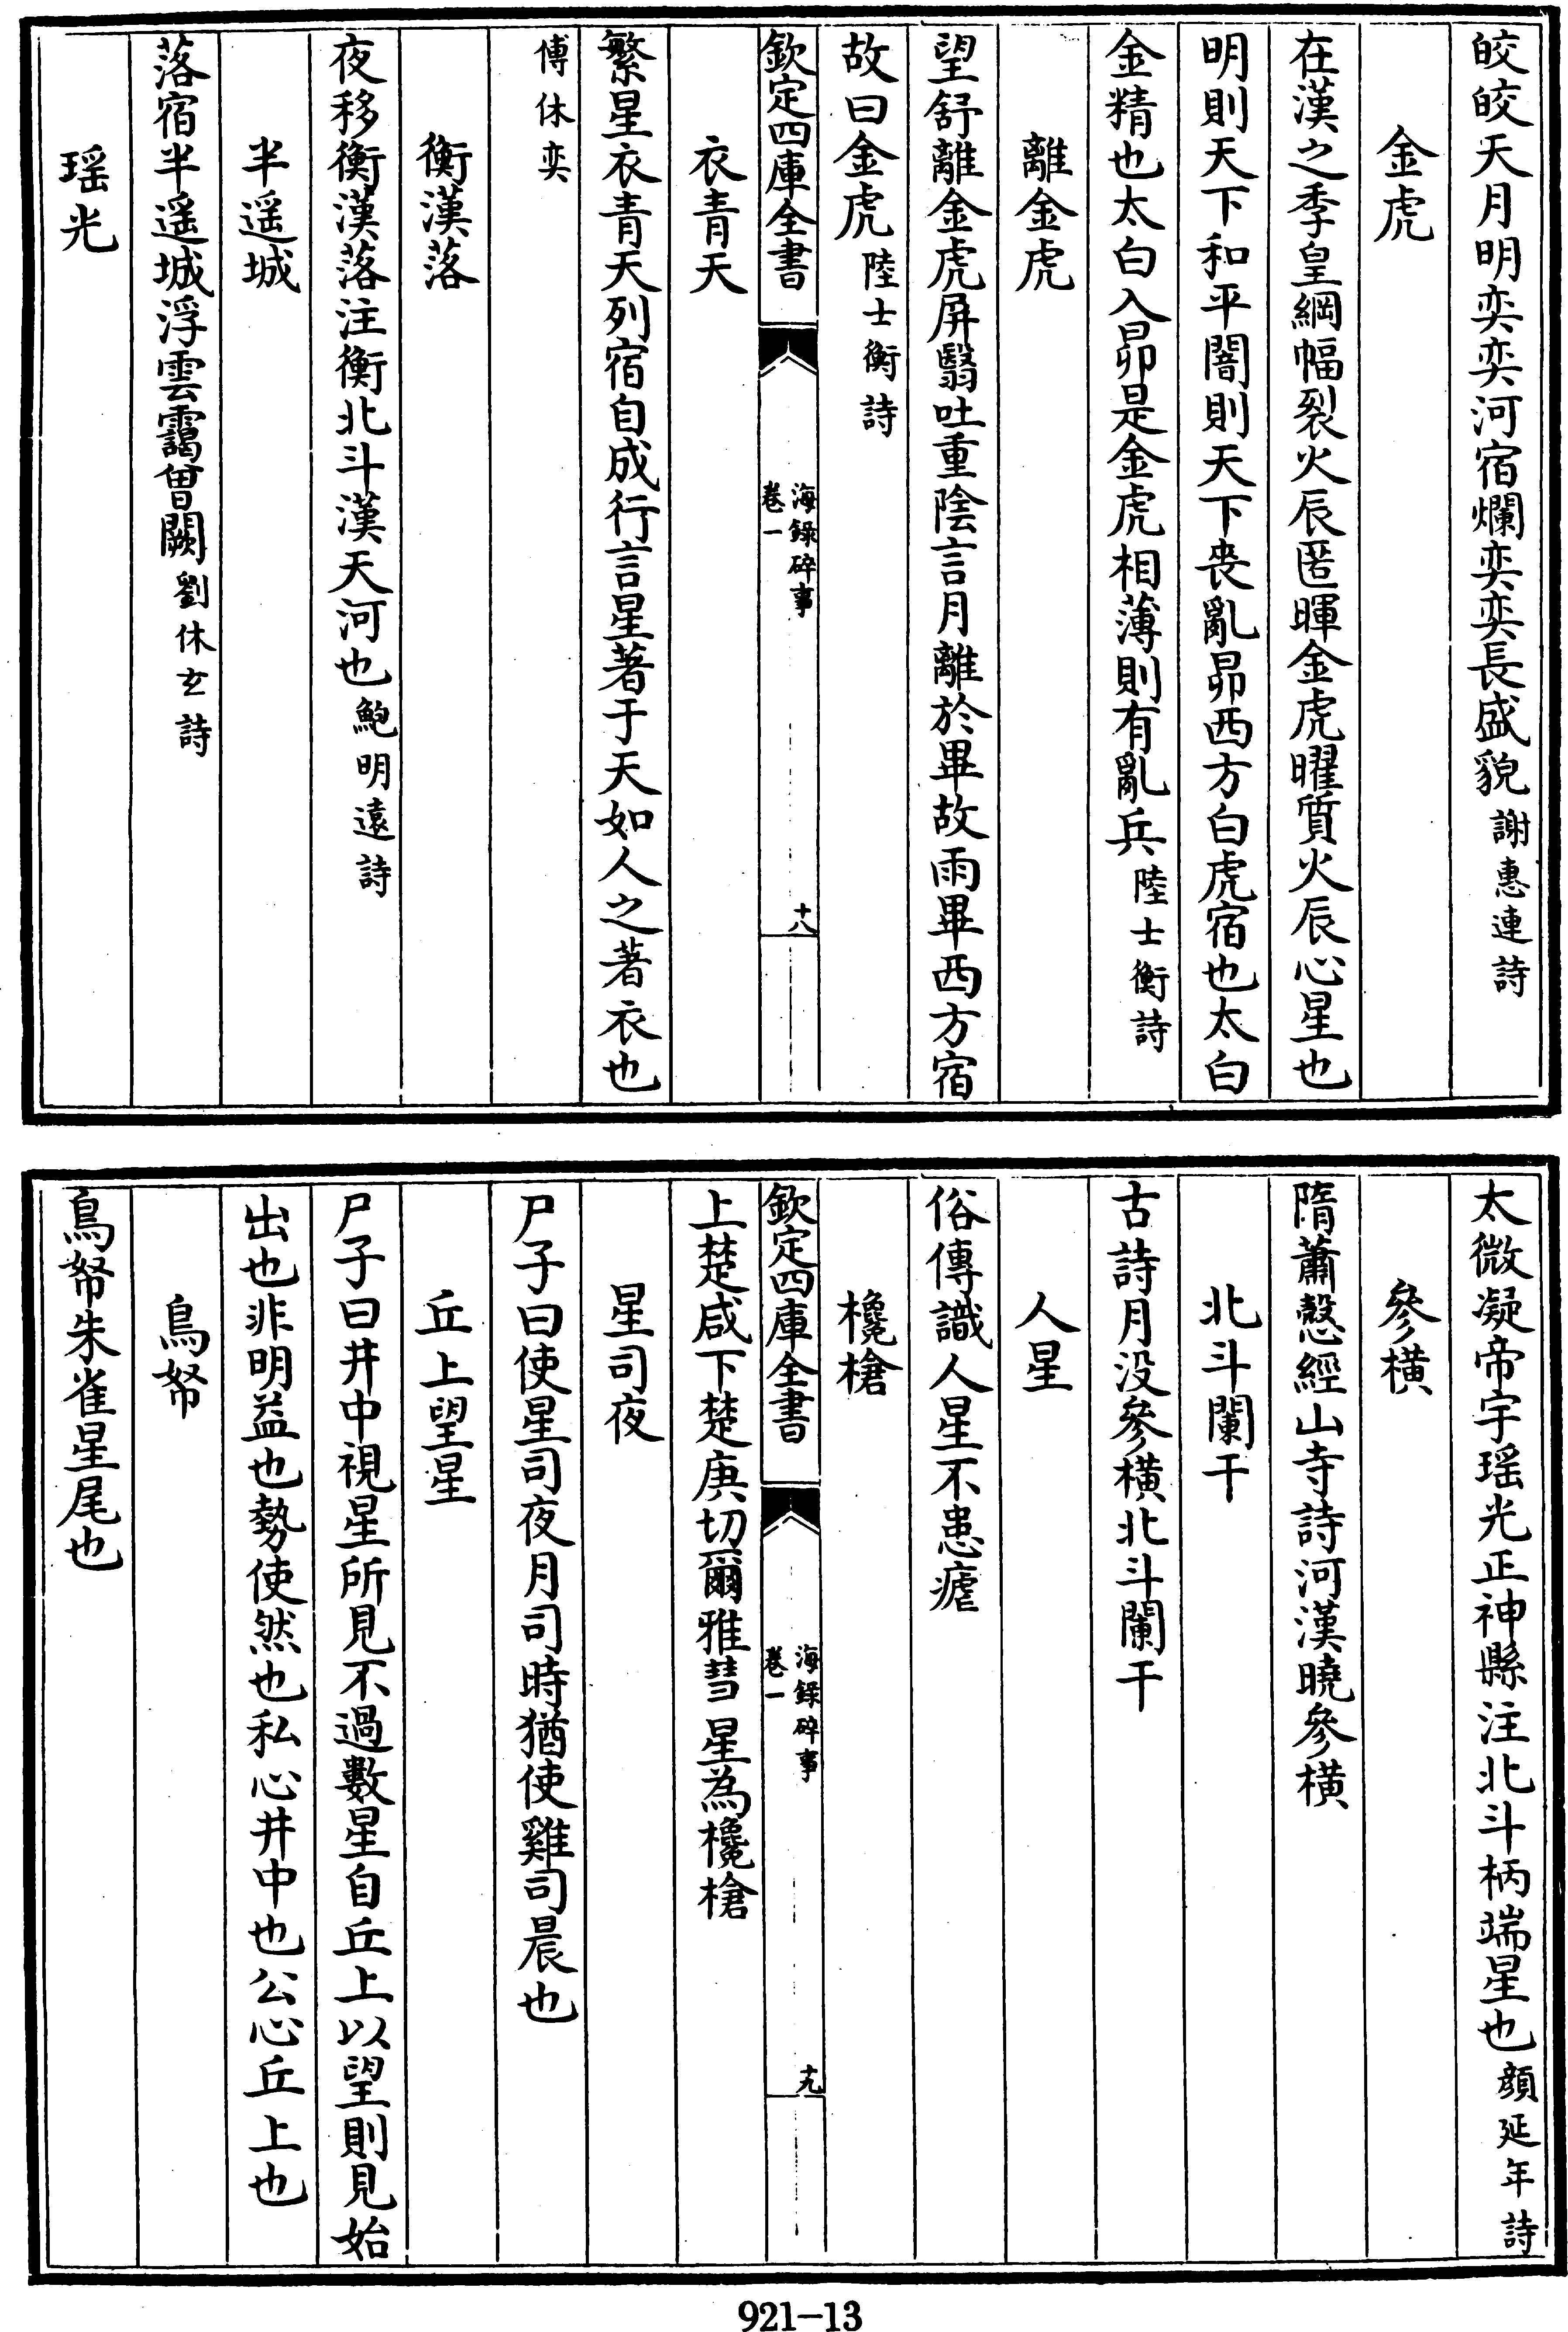 皎皎天月明奕奕河宿爛奕奕長盛貌謝惠連詩
金虎
在漢之季皇綱幅裂火辰匿暉金虎曜質火辰心星也
明則天下和平闇則天下喪亂昴西方白虎宿也太白
金精也太白入昴是金虎相薄則有亂兵陸士衡詩
離金虎
望舒離金虎屏翳吐重陰言月離於畢故雨畢西方宿
故曰金虎陸士衡詩
欽定四庫全書
海錄碎事
卷一
十八
衣青天
繁星衣青天列宿自成行言星著于天如人之著衣也
傅休奕
衡漢落
夜移衡漢落注衡北斗漢天河也鮑明遠詩
半遥城
落宿半遥城浮雲靄曾闕劉休玄詩
瑶光
太微凝帝宇瑶光正神縣注北斗柄端星也顔延年詩
參橫
隋蕭慤經山寺詩河漢曉參橫
北斗闌干
古詩月没參橫北斗闌干
人星
俗傳識人星不患瘧
欃槍
欽定四庫全書
海錄碎事
卷一
十九
上楚咸下楚庚切爾雅彗星為欃槍
星司夜
尸子曰使星司夜月司時猶使雞司晨也
丘上望星
尸子曰井中視星所見不過數星自丘上以望則見始
出也非明益也勢使然也私心井中也公心丘上也
鳥帑
鳥帑朱雀星尾也
921-13